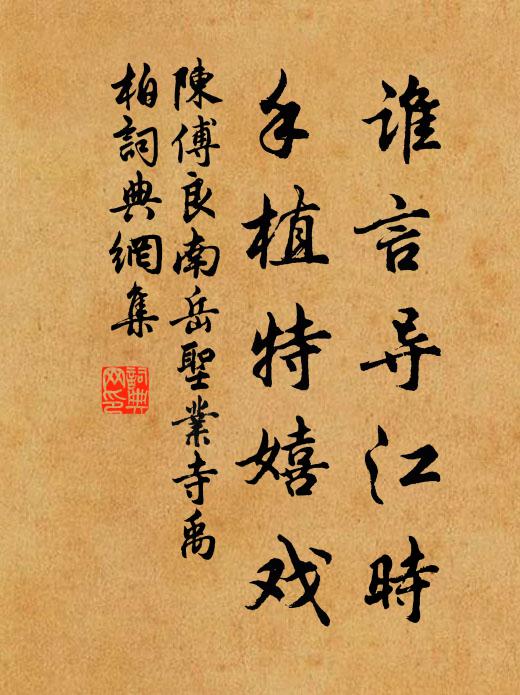 谁言导江時
手植特嬉戏
陳傅良南岳聖業寺禹
柏詞典網集
詞典網印